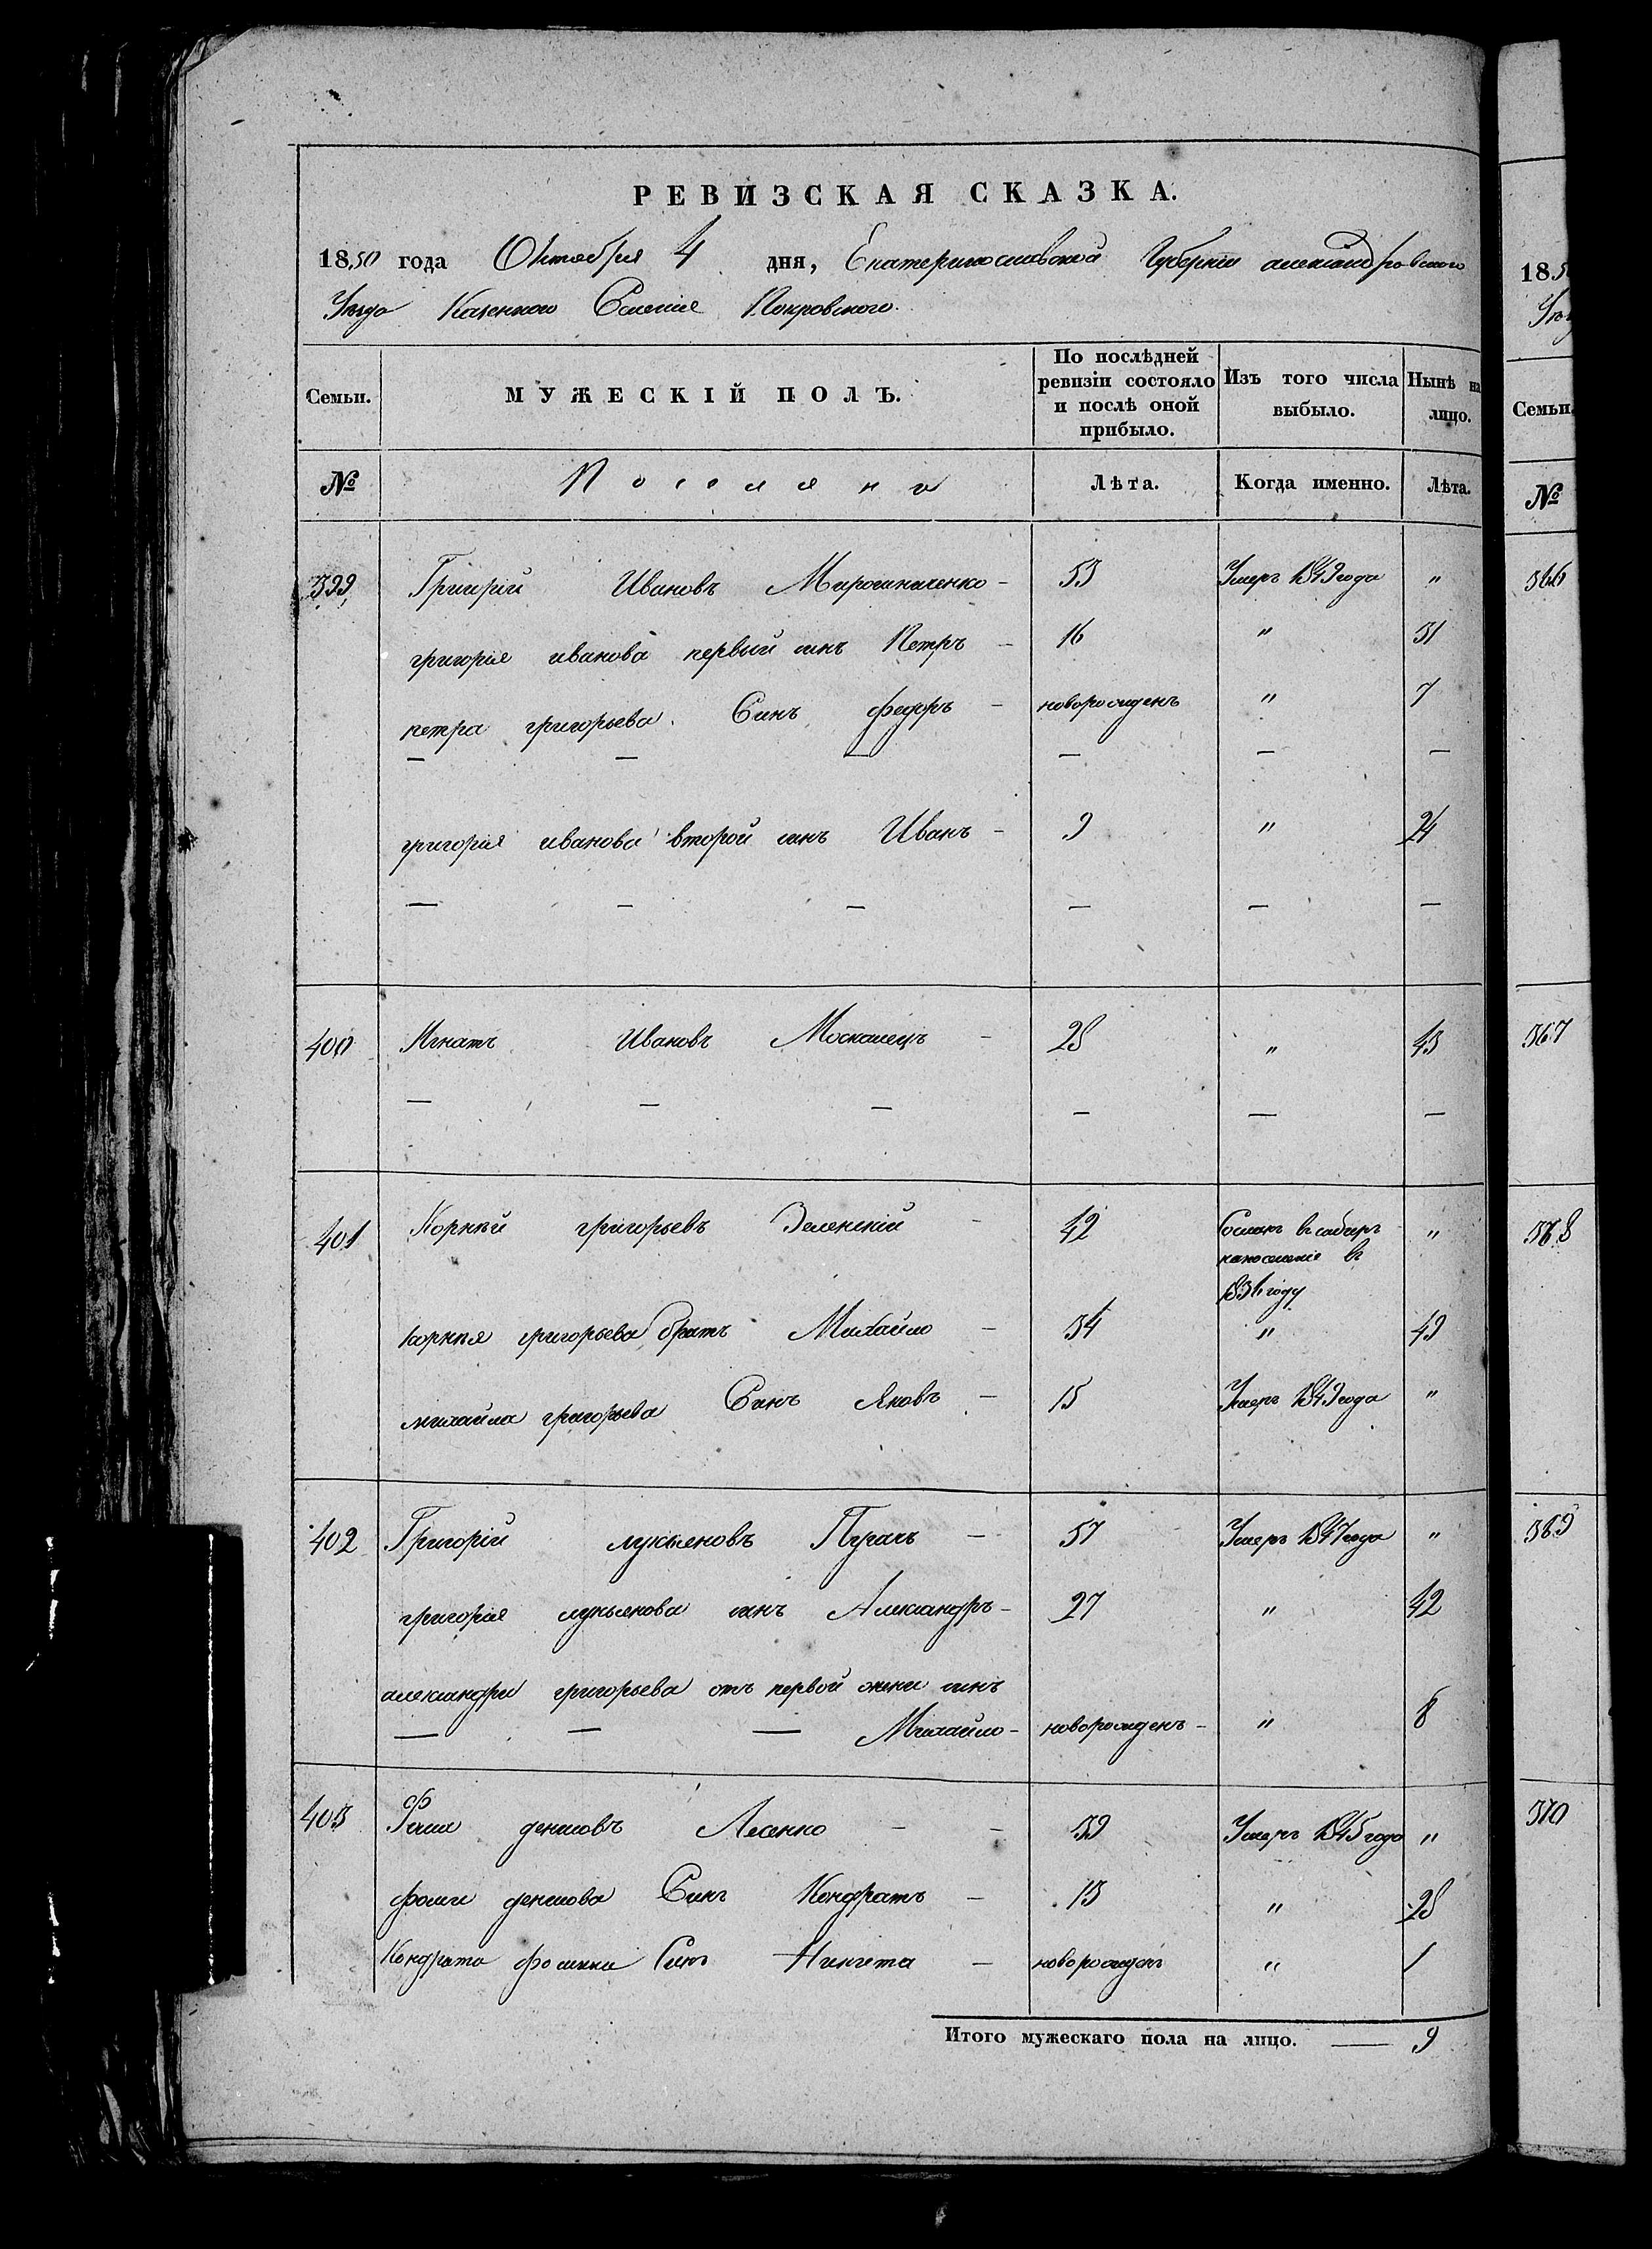 РЕВИЗСКАЯ СКАЗКА.
1850 года Октября 4 дня, Екатеринославской Губерніи александровского
Уезда Казенного Селенія Покровского.
Семьи. МУЖЕСКІЙ ПОЛЪ. По послѣдней ревизіи состояло и послѣ оной прибыло. Изъ того числа выбыло. Нынѣ на лицо.
№ Поселяне Лѣта. Когда именно. Лѣта.
399 Григорій Ивановъ Мирошниченко - 53 Умеръ 1849 года "
григорія иванова первый синъ Петръ - 16 " 31
петра григорьева Синъ федоръ - новорожденъ " 7
— — — — — —
григорія иванова второй синъ Иванъ - 9 " 24
— — — — — —
400 Игнатъ Ивановъ Москалецъ - 28 " 43
— — — — — —
401 Корнѣй григорьевъ Зеленскій - 42 Сосланъ въ сибиръ "
на поселеніе въ
1836 году
корнѣя григорьева братъ Михайло - 34 " 49
михайла григорьева Синъ Яковъ - 15 Умеръ 1849 года "
402 Григорій лукьяновъ Пугачъ - 57 Умеръ 1847 года "
григорія лукьянова синъ Александръ - 27 " 42
александра григорьева отъ первой жени синъ
— — — Михайло - новорожденъ - " 8
403 Фома денисовъ Лесенко - - 39 Умеръ 1845 года "
фоми денисова Синъ Кондратъ - 13 " 28
Кондрата фомина Синъ Никита - новорожденъ " 1
Итого мужескаго пола на лицо. — 9
185
Семьи.
№
366
367
368
369
370